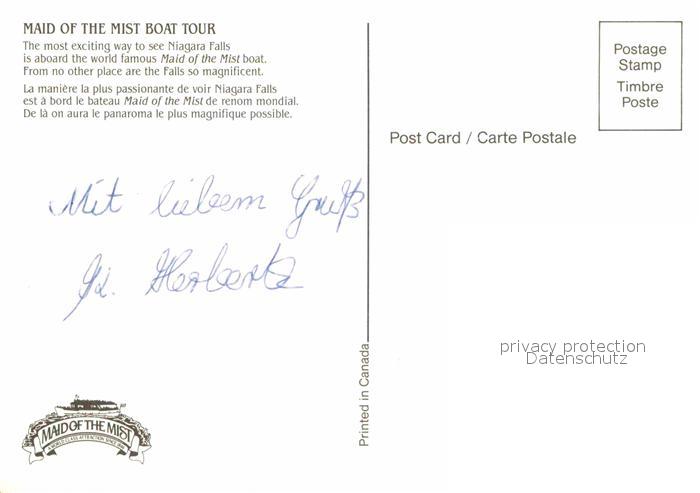 MAID OF THE MIST BOAT TOUR
The most exciting way to see Niagara Falls
is aboard the world famous Maid of the Mist boat.
From no other place are the Falls so magnificent.
La manière la plus passionante de voir Niagara Falls
est à bord le bateau Maid of the Mist de renom mondial.
De là on aura le panaroma le plus magnifique possible.
Postage
Stamp
Timbre
Poste
Post Card / Carte Postale
Mit liebem Gruß
Herbertz
privacy protection
Datenschutz
Printed in Canada
MAID OF THE MIST
A WORLD CLASS ATTRACTION SINCE